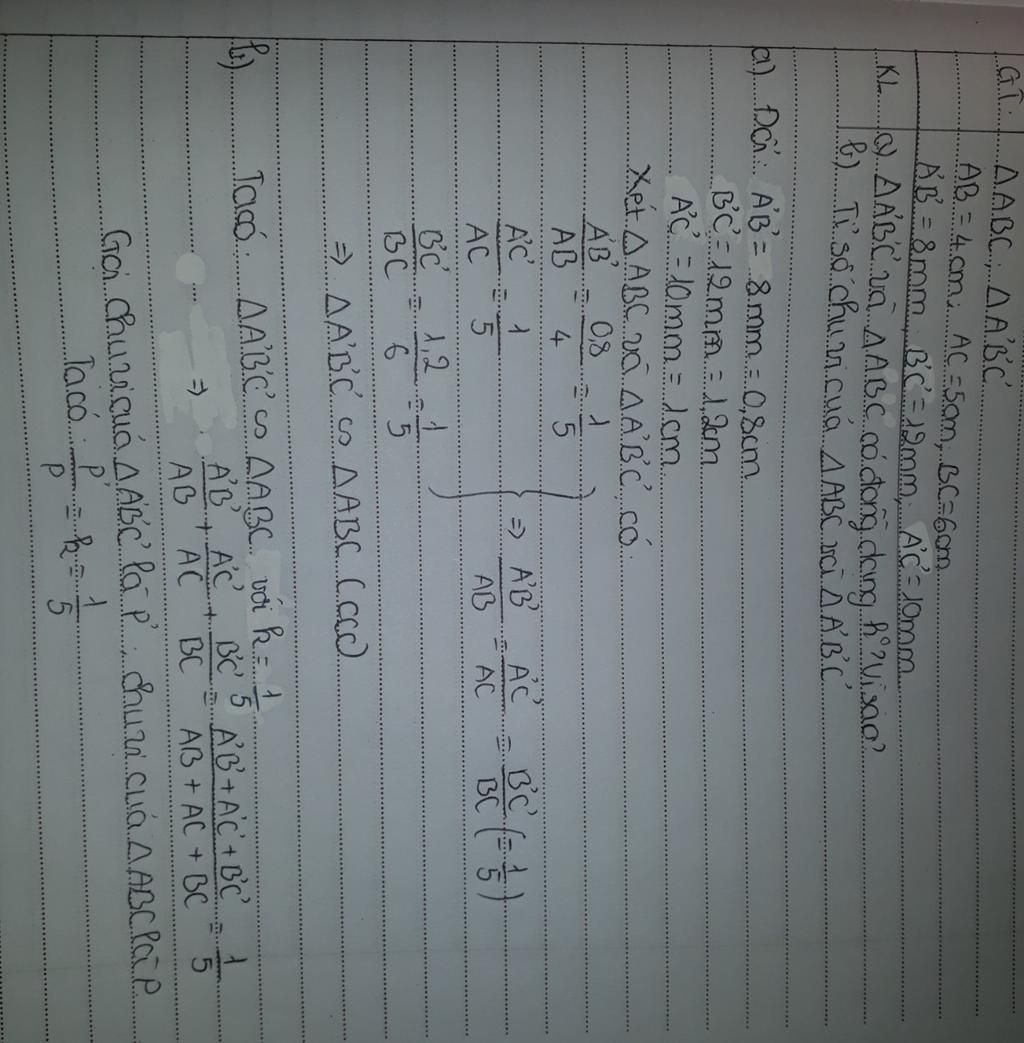 GT. ΔABC; ΔA'B'C'
AB = 4cm; AC = 5cm; BC = 6cm
A'B' = 8mm; B'C' = 12mm; A'C' = 10mm
KL a) ΔA'B'C' và ΔABC có đồng dạng k° ? Vì sao?
b) Tỉ số chu vi của ΔABC với ΔA'B'C'
a) Đổi: A'B' = 8mm = 0,8cm
B'C' = 12mm = 1,2cm
A'C' = 10mm = 1cm
Xét ΔABC và ΔA'B'C' có:
A'B'/AB = 0,8/4 = 1/5
A'C'/AC = 1/5
B'C'/BC = 1,2/6 = 1/5
} ⇒ A'B'/AB = A'C'/AC = B'C'/BC (= 1/5)
⇒ ΔA'B'C' ∽ ΔABC (ccc)
b) Ta có: ΔA'B'C' ∽ ΔABC với k = 1/5
⇒ A'B'/AB + A'C'/AC + B'C'/BC = A'B' + A'C' + B'C'/AB + AC + BC = 1/5
Gọi chu vi của ΔA'B'C' là P'; chu vi của ΔABC là P
Ta có: P'/P = k = 1/5